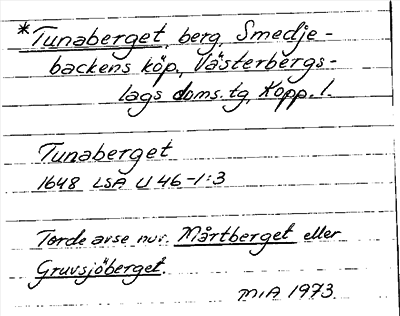 *Tunaberget, berg, Smedje-
backens köp., Västerbergs-
lags doms. tg, Kopp. l.
Tunaberget
1648 LSA U 46-1:3
Torde avse nuv. Mårtberget eller
Gruvsjöberget.
M.A 1973